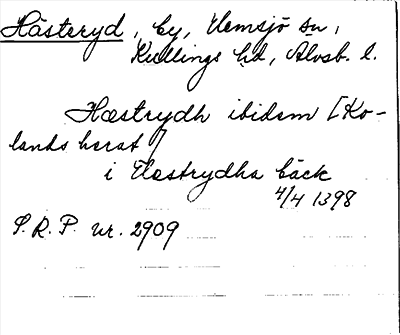 Hästeryd, by, Hemsjö sn,
Kullings hd, Älvsb. l.
Hæstrydh ibidem [Ko-
lands hærat]
i Hæstrydha bäck
4/4 1398
S.R.P. nr. 2909